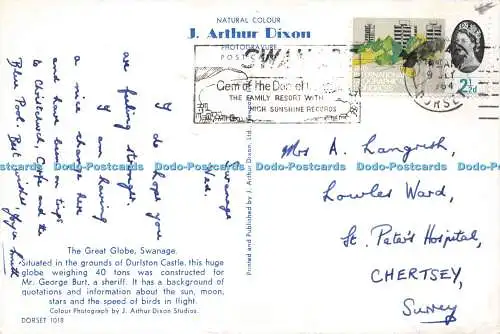 NATURAL COLOUR
J. Arthur Dixon
PHOTOGRAVURE
POSTCARD
SWANAGE
Gem of the Dorset
THE FAMILY RESORT WITH
HIGH SUNSHINE RECORDS
INTERNATIONAL
GEOGRAPHICAL
CONGRESS
2½d
9 JLY
1964
DORSET
Swanage
Wed.
I do hope you
are feeling stronger.
I am having
a nice change here
and have been on trips
to Christchurch, Corfe and the
Blue Pool. Best wishes Joyce Smith
Printed and Published by J. Arthur Dixon Ltd.
Mrs A. Langrish,
Lowles Ward,
St. Peter's Hospital,
CHERTSEY,
Surrey
The Great Globe, Swanage.
Situated in the grounds of Durlston Castle, this huge
globe weighing 40 tons was constructed for
Mr. George Burt, a sheriff. It has a background of
quotations and information about the sun, moon,
stars and the speed of birds in flight.
Colour Photograph by J. Arthur Dixon Studios.
DORSET 1018
Dodo-Postcards Dodo-Postcards Dodo-Postcards Dodo-Postcards